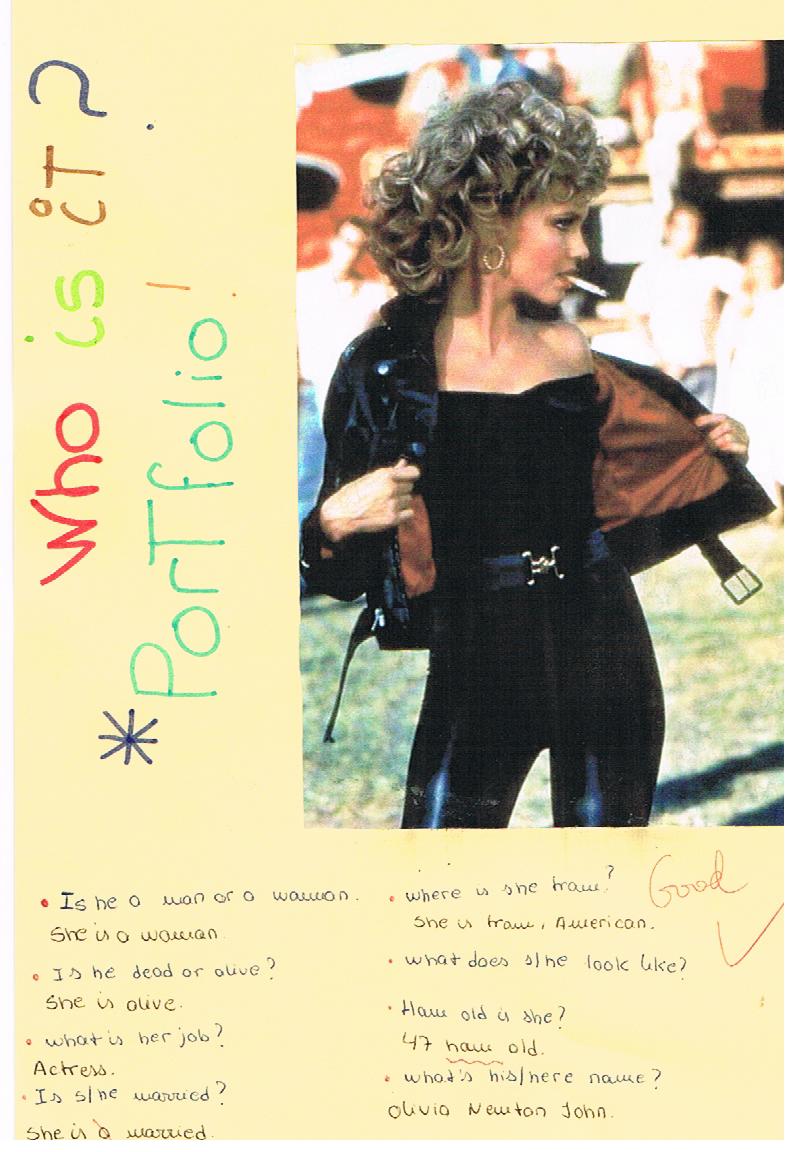 Who is iT?
*PorTfolio!
• Is he a man or a woman.
She is a woman.
• Is he dead or alive?
She is alive.
• what is her job?
Actress.
• Is s/he married?
She is a married.
• where is she from?
She is from, American.
• what does s/he look like?
• How old is she?
47 how old.
• what's his/here name?
Olivia Newton John.
Good